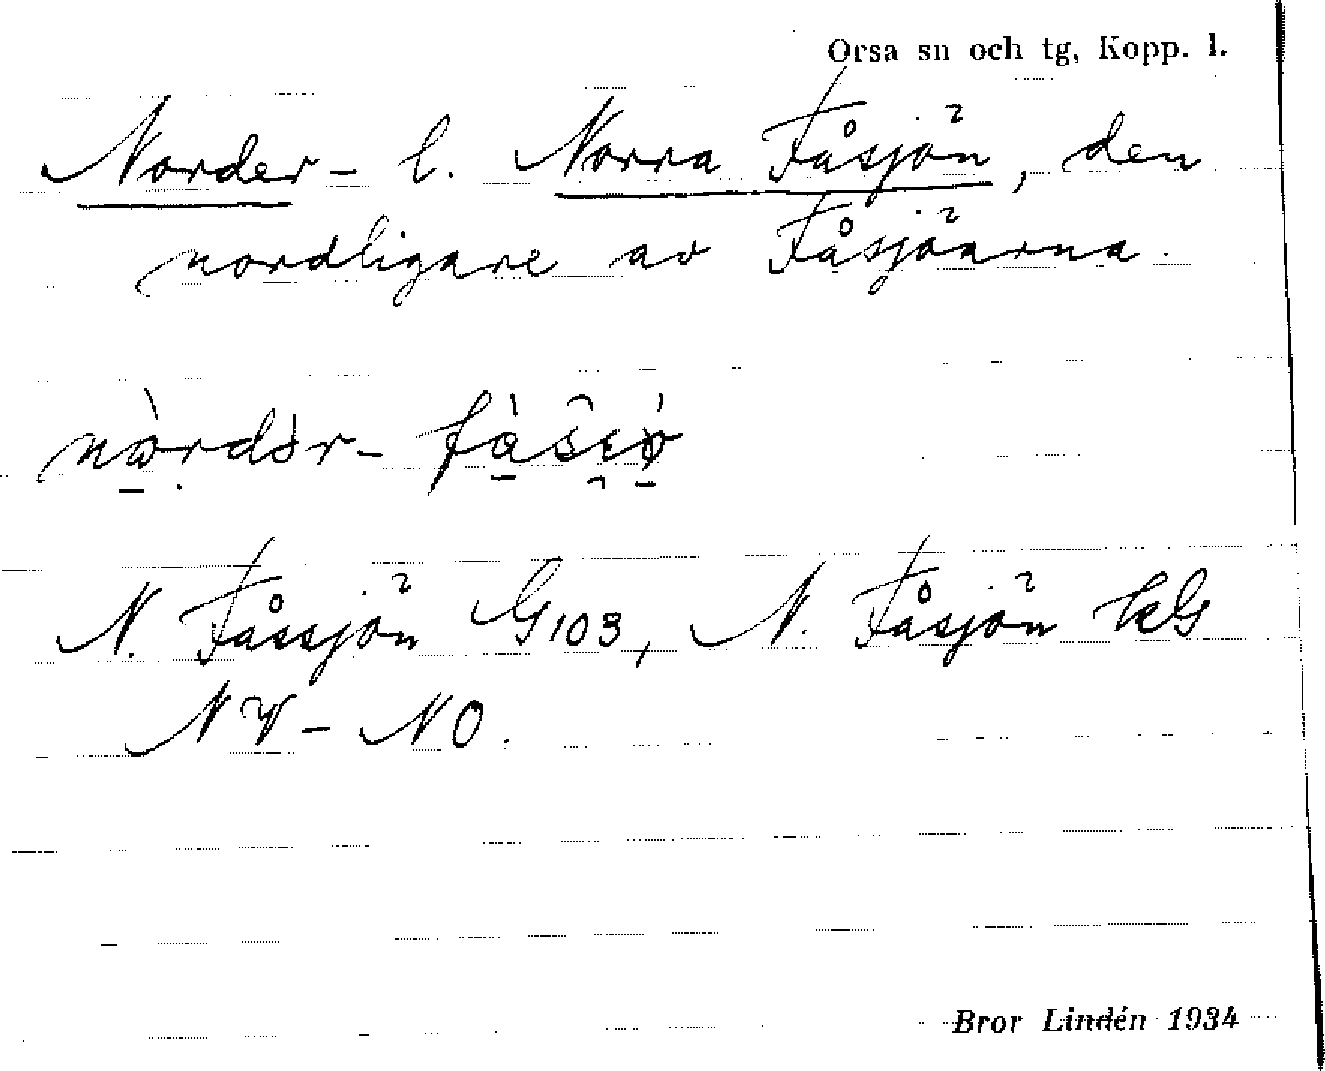 Orsa sn och tg, Kopp. l.
Norder- l. Norra Fåsjön, den
nordligare av Fåsjöarna.
N. Fåssjön G103, N. Fåsjön kG
NV - NO.
Bror Lindén 1934